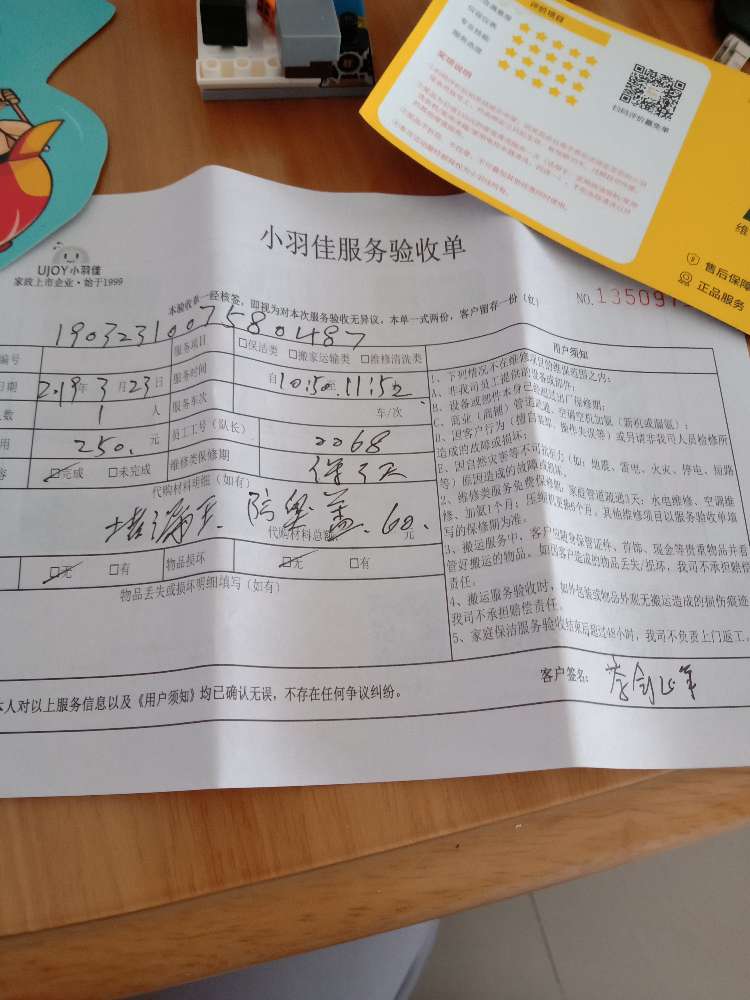 评价项目
仪容仪表
专业技能
服务态度
奖项说明
扫码评价赢免单
维
售后保障
正品服务
小羽佳服务验收单
UJOY小羽佳
家政上市企业·始于1999
本验收单一经核签，即视为对本次服务验收无异议，本单一式两份，客户留存一份（红）
NO.135097
1903231007580487
编号 服务项目 □保洁类 □搬家运输类 □维修清洗类
日期 2019年3月23日 服务时间 自10:50 11:52
人数 1 人 服务车次 车/次
用 250. 元 员工工号（队长） 2068
容 □完成 □未完成 维修类保修期 保3天
代购材料明细（如有）
堵漏王 防臭盖 60.
代购材料总额 元
□无 □有 物品损坏 □无 □有
物品丢失或损坏明细填写（如有）
本人对以上服务信息以及《用户须知》均已确认无误，不存在任何争议纠纷。
客户签名:
用户须知
1、下列情况不在维修项目的维保范围之内：
A、非我司人员提供的服务或部件；
B、设备或部件本身已经超过出厂保修期；
C、商业（商铺）管道疏通、空调空机加氨（新机或漏氨）；
D、因客户行为（擅自装卸、操作失误等）或另请非我司人员检修所
造成的故障或损坏；
E、因自然灾害等不可抗拒力（如：地震、雷电、火灾、停电、短路
等）原因造成的故障或损坏。
2、维修类服务免费保修期：家庭管道疏通3天；水电维修、空调维
修、加氨1个月；压缩机更换6个月。其他维修项目以服务验收单填
写的保修期为准。
3、搬运服务中，客户应随身保管证件、首饰、现金等贵重物品并看
管好搬运的物品。如因客户造成的物品丢失/损坏，我司不承担赔偿
责任。
4、搬运服务验收时，如外包装或物品外观无搬运造成的损伤痕迹
我司不承担赔偿责任。
5、家庭保洁服务验收结束后超过48小时，我司不负责上门返工。